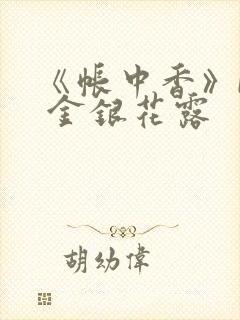 《帐中香》
金银花露
胡幼偉